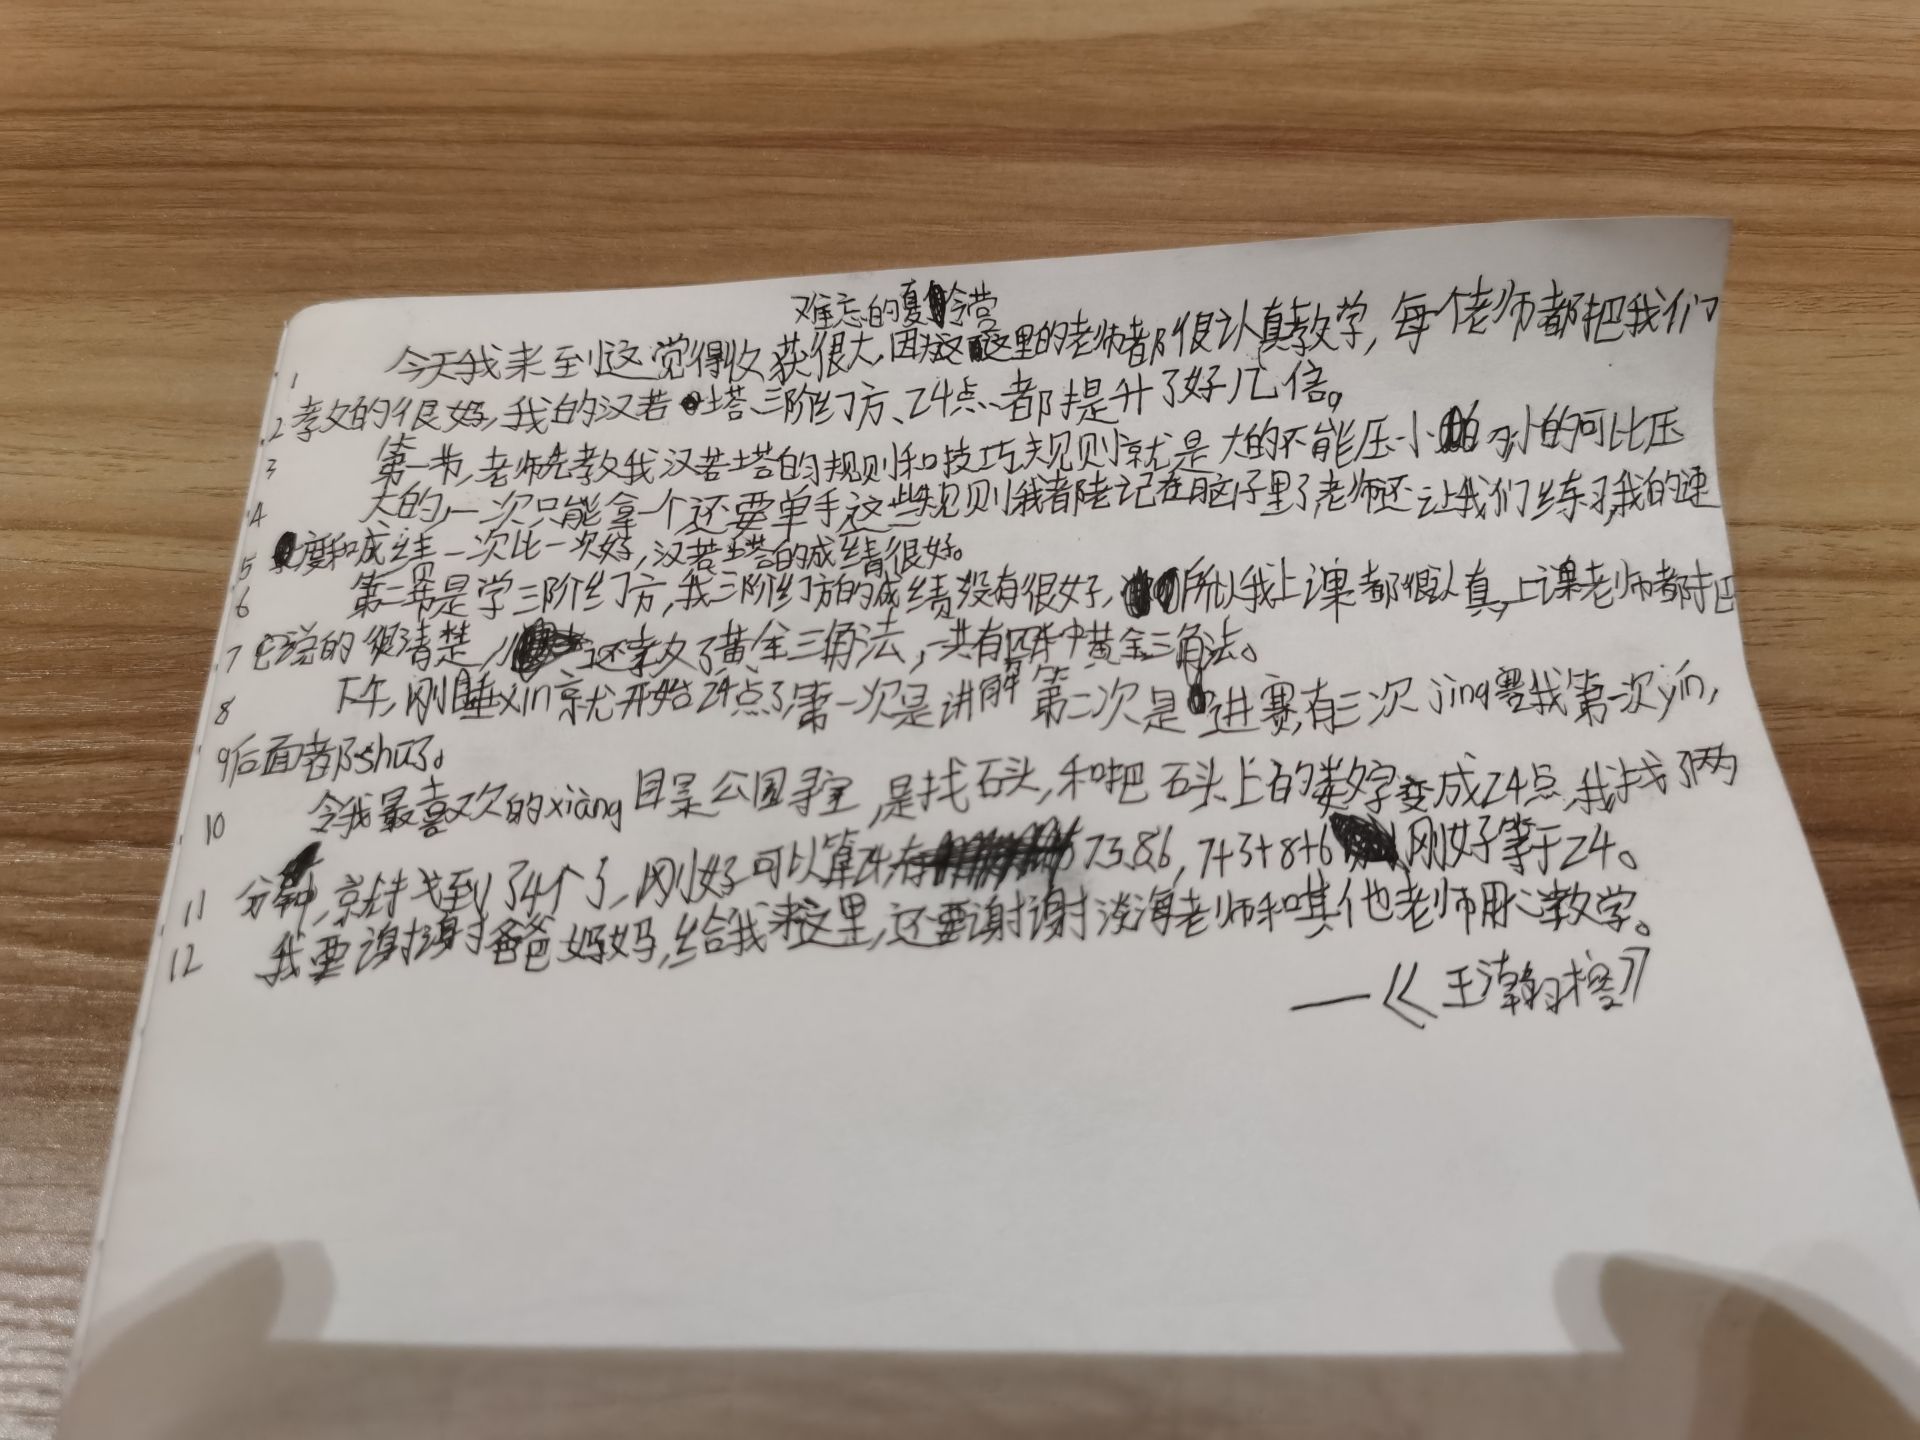 难忘的夏令营
1 今天我来到这觉得收获很大,因为这里的老师都很认真教学,每个老师都把我们
2 教的很好,我的汉若塔、三阶幻方、24点、都提升了好几倍。
3 第一节,老师先教我汉若塔的规则和技巧规则就是大的不能压小 小的可比压
4 大的,一次只能拿一个还要单手这些规则我都记在脑子里了老师还让我们练习,我的速
5 度和成绩一次比一次好,汉若塔的成绩很好。
6 第二节是学三阶幻方,我三阶幻方的成绩没有很好,所以我上课都很认真,上课老师都把
7 它说的很清楚,还教了黄金三角法,一共有四种黄金三角法。
8 下午,刚睡xǐn就开始24点了第一次是讲解第二次是进赛,有三次jìng赛我第一次yín,
9 后面都shū了。
10 令我最喜欢的xiàng目是公园寻宝,是找石头,和把石头上的数字变成24点,我找了两
11 分钟,就找到了4个了,刚好可以算24,有7.3.8.6,7+3+8+6刚好等于24。
12 我要谢谢爸爸妈妈,给我来这里,还要谢谢淡海老师和其他老师用心教学。
——《王瀚》